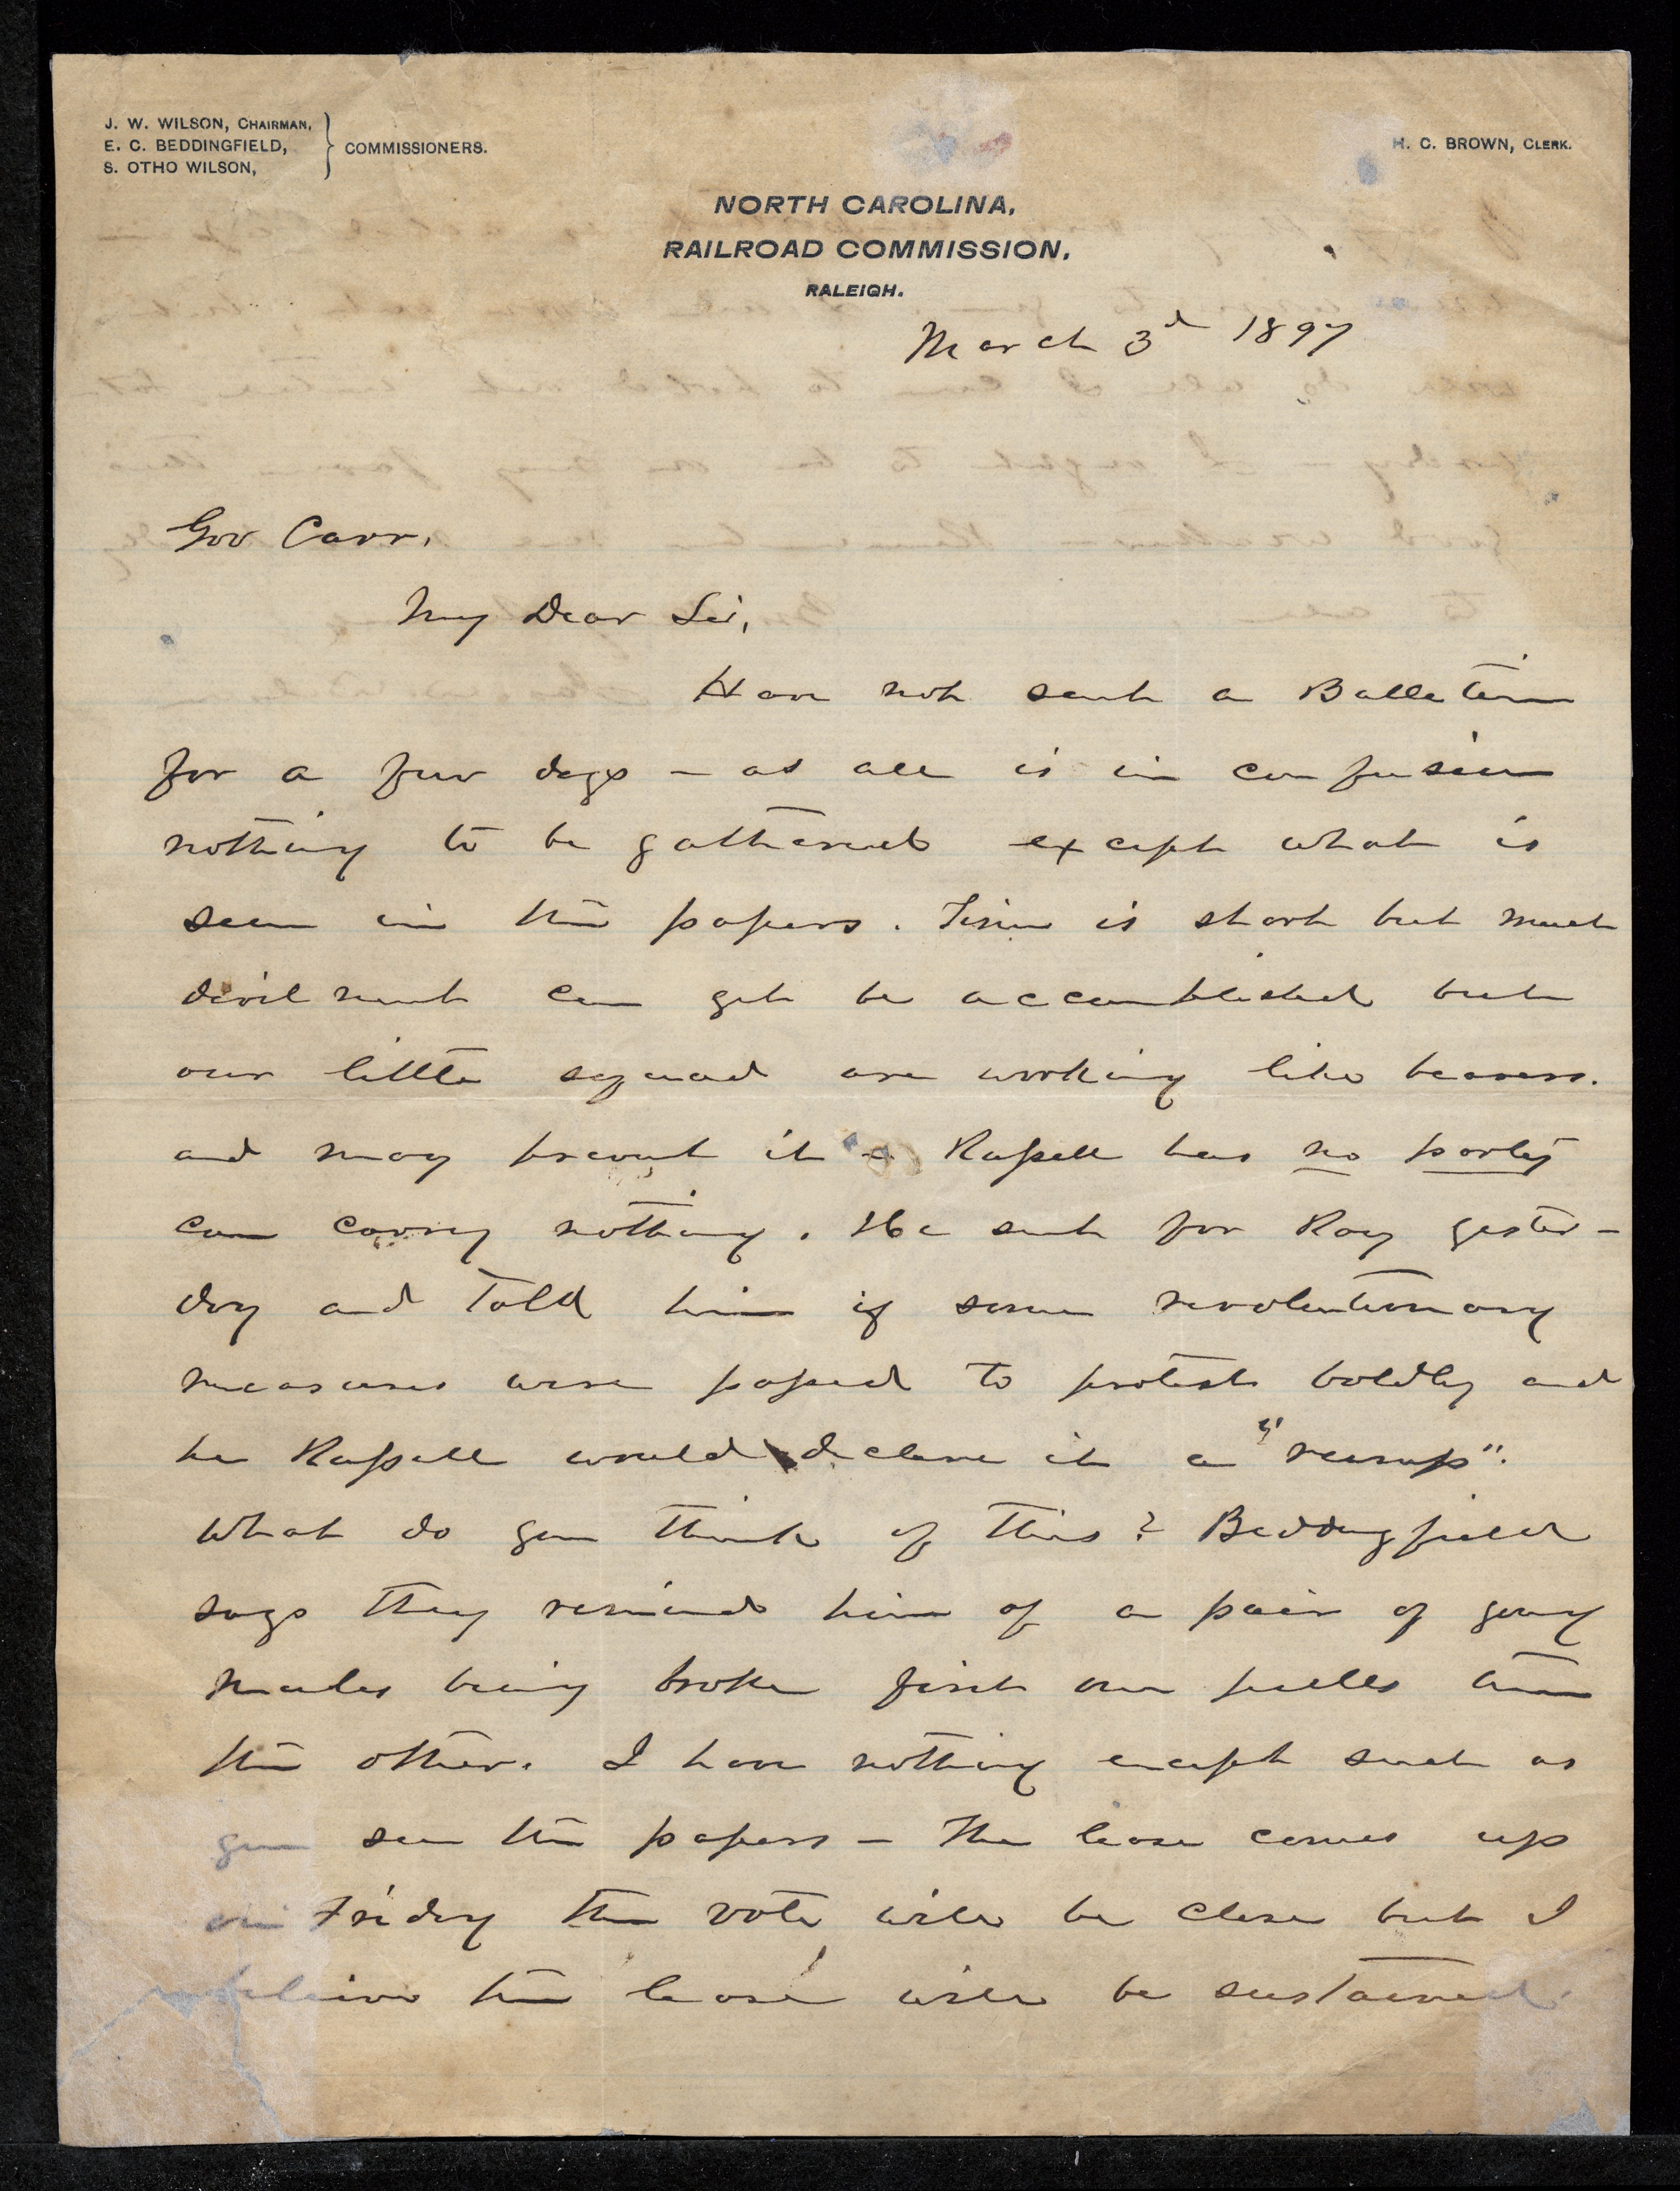 J. W. WILSON, CHAIRMAN,
E. C. BEDDINGFIELD,
S. OTHO WILSON,
COMMISSIONERS.
H. C. BROWN, CLERK.
NORTH CAROLINA,
RAILROAD COMMISSION,
RALEIGH.
March 3d 1897
Gov Carr,
My Dear Sir,
Have not sent a Bulletin
for a few days - as all is in confusion
nothing to be gathered except what is
seen in the papers. Time is short but much
devilment can yet be accomplished but
our little squad are working like beavers.
and may prevent it - Russell has no party
can carry nothing. He sent for Ray yester-
day and Told him if some revolutionary
measures were passed to protest boldly and
he Russell would declare it a "rump".
What do you think of this? Beddingfield
says they remind him of a pair of young
mules being broke first one pulls then
the other. I have nothing except such as
you see the papers - The lease comes up
on Friday the vote will be close but I
believe the lease will be sustained.